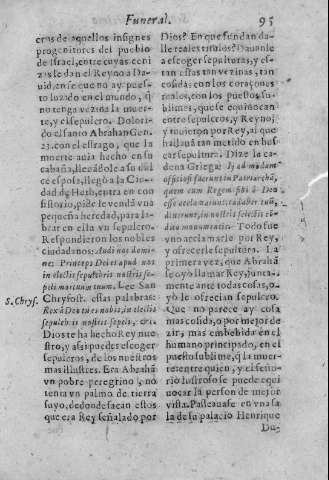 Funeral.
95
cros de aquellos insignes
progenitores del pueblo
de Israel, entre cuyas ceni
zas se dan el Reyno a Da-
uid, en fe que no ay pues-
to luzado en el mundo, q̃
no tenga vezina la muer-
te, y el sepulcro. Dolori-
do el santo Abrahan Gen.
23. con el estrago, que la
muerte auia hecho en su
cabaña, lleuãdole a su dul
ce esposa, llegò a la Ciu-
dad de Heth, entra en con
sistorio, pide le vendã vna
pequeña heredad, para la-
brar en ella vn sepulcro.
Respondieron los nobles
ciudadanos: Audi nos domi-
ne: Princeps Dei es apud nos
in electis sepulchris nostris se-
peli mortuum tuum. Lee San
Chrysost. estas palabras:
S. Chrys.
Rex à Deo tu es nobis, in electis
sepulchris nostris sepeli, &c.
Dios te ha hecho Rey nue
stro, y assi puedes escoger
sepulcros, de los nuestros
mas illustres. Era Abrahã
vn pobre peregrino, no
tenta vn palmo de tierra
suyo, de donde sacan estos
que era Rey señalado por
Dios? En que fundan da-
lle reales titulos? Dauanle
a escoger sepulturas, y es-
tan estas tan vezinas, tan
cosidas con los coraçones
reales, con los puestos su-
blimes, que se equiuocan
entre sepulcros, y Reyno;
y tuuieron por Rey, al que
hallauã tan metido en bus
car sepultura. Dize la ca-
dena Griega: Ij ad modum
officiosi fuerunt in Patriarchã,
quem cum Regem sibi à Deo
esse acclamarunt: cadauer tuũ,
dixerunt, in nostris selectis cõ-
dito monumentis. Todo fue
vno acclamarle por Rey,
y ofrecerle sepultura. La
primera vez, que Abrahã
se oyò llamar Rey, junta-
mente ante todas cosas, o-
yò le ofrecian sepulcro.
Que no parece ay cosa
mas cosida, o por mejor de
zir, mas embebida en el
humano principado, en el
puesto sublime, q̃ la muer-
te; entre quien, y el seño-
rio lustroso se puede equi
uocar la persona de mejor
vista. Passeauase en vna sa
la de su palacio Henrique
Du-